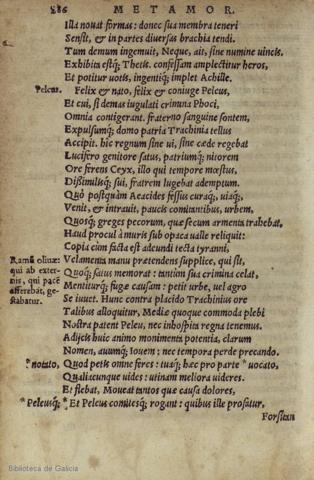 286 METAMOR.
Illa nouat formas: donec sua membra teneri
Sensit, & in partes diuersas brachia tendi.
Tum demum ingemuit, Neque, ait, sine numine uincis.
Exhibita estq́; Thetis. confessam amplectitur heros,
Et potitur uotis, ingentiq́; implet Achille.
Peleus. Felix & nato, felix & coniuge Peleus,
Et cui, si demas iugulati crimina Phoci,
Omnia contigerant. fraterno sanguine sontem,
Expulsumq́; domo patria Trachinia tellus
Accipit. hic regnum sine ui, sine cæde regebat
Lucifero genitore satus, patriumq́; nitorem
Ore ferens Ceyx, illo qui tempore mœstus,
Dissimilisq́; sui, fratrem lugebat ademptum.
Quò postquàm Aeacides fessus curaq́;, uiaq́;,
Venit, & intrauit, paucis comitantibus, urbem,
Quosq́; greges pecorum, quæ secum armenta trahebat,
Haud procul à muris sub opaca ualle reliquit:
Copia cùm facta est adeundi tecta tyranni,
Ramũ oliuæ: Velamenta manu prætendens supplice, qui sit,
qui ab exter- Quoq́; satus memorat: tantùm sua crimina celat,
nis, qui pacẽ Mentiturq́; fugæ causam: petit urbe, uel agro
afferebat, ge- Se iuuet. Hunc contra placido Trachinius ore
stabatur. Talibus alloquitur, Mediæ quoque commoda plebi
Nostra patent Peleu, nec inhospita regna tenemus.
Adijcis huic animo monimenta potentia, clarum
Nomen, auumq́; Iouem: nec tempora perde precando.
*notato, Quod petis omne feres: tuaq́; hæc pro parte *uocato,
Qualiacunque uides: utinam meliora uideres.
Et flebat, Moueat tantos quæ causa dolores,
*Peleusq́; *Et Peleus comitesq́; rogant: quibus ille profatur,
Forsitan
Biblioteca de Galicia